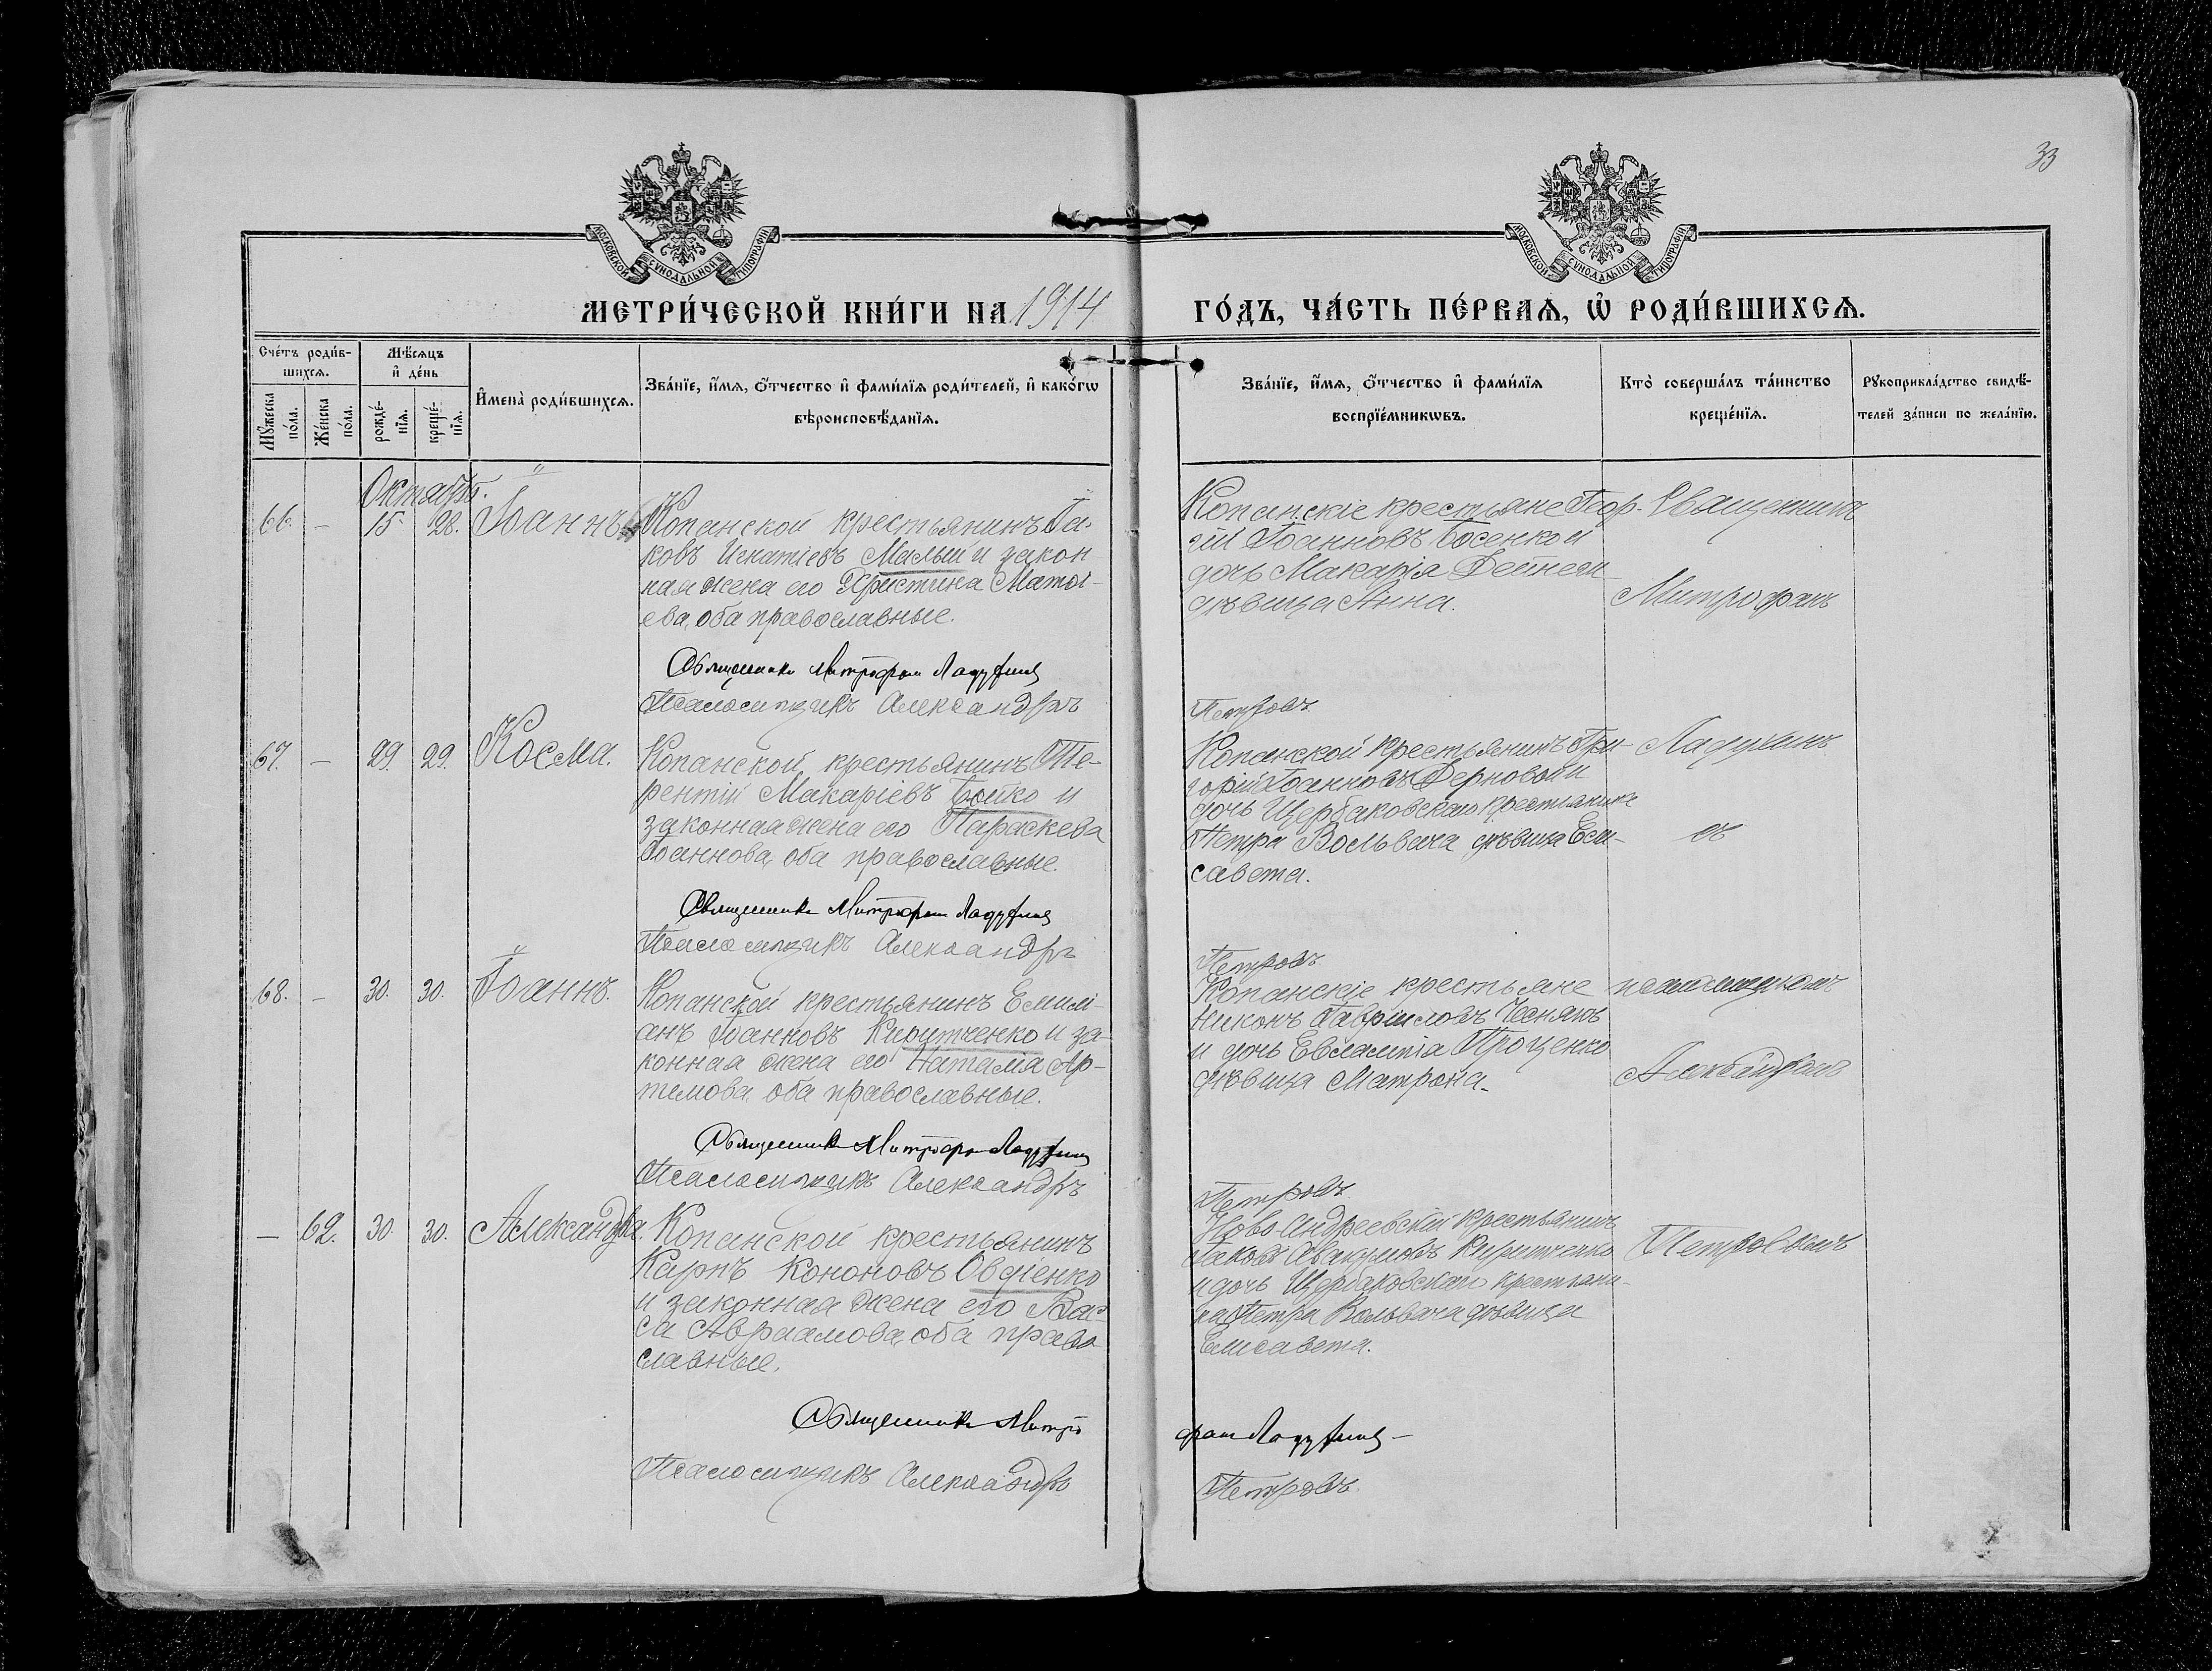 33
МОСКОВСКОЙ СѴНОДАЛЬНОЙ ТИПОГРАФІИ
МОСКОВСКОЙ СѴНОДАЛЬНОЙ ТИПОГРАФІИ
МЕТРИ́ЧЕСКОЙ КНИ́ГИ НА 1914 ГО́ДЪ, ЧА́СТЬ ПЕ́РВАѦ, Ѡ҆ РОДИ́ВШИХСѦ.
Сче́тъ роди́в-
шихсѧ.
Мꙋ́жеска
по́ла.
Же́нска
по́ла.
Мѣ́сѧцъ
и҆ де́нь
рожде́-
нїѧ.
креще́-
нїѧ.
И҆мена̀ роди́вшихсѧ.
Зва́нїе, и҆́мѧ, ѻ҆́тчество и҆ фами́лїѧ роди́телей, и҆ како́гѡ
вѣроисповѣ́данїѧ.
Зва́нїе, и҆́мѧ, ѻ҆́тчество и҆ фами́лїѧ
воспрїе́мникѡвъ.
Кто̀ соверша́лъ та́инство
креще́нїѧ.
Рꙋкоприкла́дство свидѣ́-
телей за́писи по жела́нїю.
Октябрь.
66. — 15. 28. Іоаннъ
Копанской крестьянинъ Іа-
ковъ Игнатіевъ Малый и закон
ная жена его Христина Матѳі-
ева, оба православные.
Священникъ Митрофанъ Ладухинъ
Псаломщикъ Александръ Петровъ
Копанскіе крестьяне Геор-
гій Іоанновъ Босенко и
дочь Макарія
дѣвица Анна.
Священникъ
Митрофанъ
67. — 29. 29. Косма.
Копанской крестьянинъ Те-
рентій Макаріевъ Бойко и
законная жена его Параскева
Іоаннова, оба православные.
Священникъ Митрофанъ Ладухинъ
Псаломщикъ Александръ Петровъ
Копанской крестьянинъ Гри-
горій Іоанновъ Дерновой и
дочь Щербаковскаго крестьянина
Петра Вольвача дѣвица Ели-
савета.
Ладухинъ
съ
68. — 30. 30. Іоаннъ.
Копанской крестьянинъ Емилі-
анъ Іоанновъ Киритченко и за-
конная жена его Наталія Ар-
темова, оба православные.
Священникъ Митрофанъ Ладухинъ
Псаломщикъ Александръ Петровъ
Копанскіе крестьяне
Никонъ Гавріиловъ Чеснякъ
и дочь Евлампія Проценко
дѣвица Матрона.
псаломщикомъ
Александромъ
— 62. 30. 30. Александра.
Копанской крестьянинъ
Карпъ Кононовъ Овдіенко
и законная жена его Вас-
са Авраамова, оба право
славные.
Священникъ Митрофанъ Ладухинъ
Псаломщикъ Александръ Петровъ
Ново-Андреевскій крестьянинъ
Іаковъ Аввакумовъ Киритченко
и дочь Щербаковскаго крестьяни-
на Петра Вольвача дѣвица
Елисавета.
Петровымъ